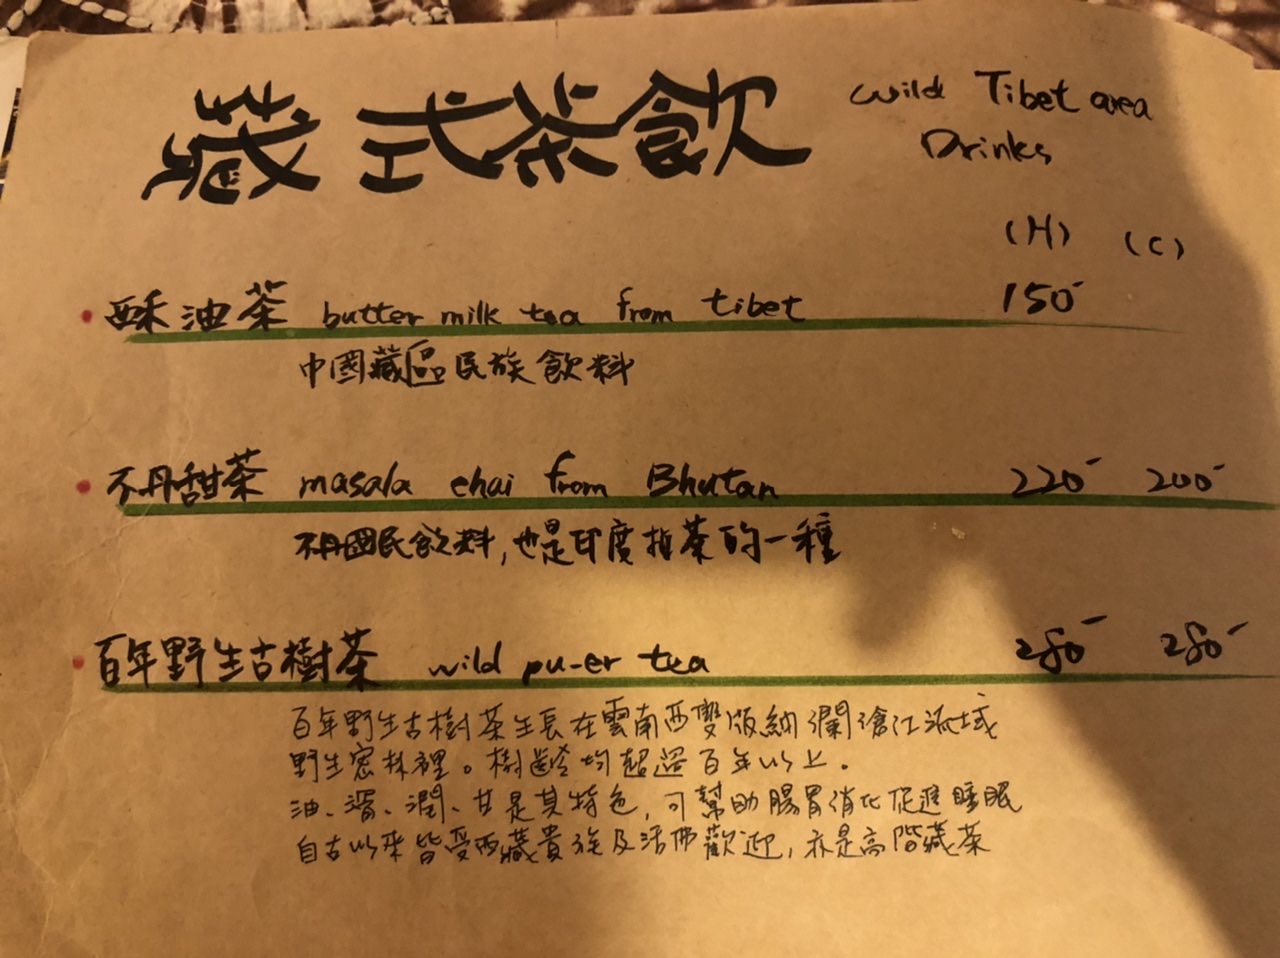 藏式茶飲 Wild Tibet area
Drinks
(H) (C)
酥油茶 butter milk tea from tibet 150-
中國藏區民族飲料
不丹甜茶 masala chai from Bhutan 220- 200-
不丹國民飲料,也是印度拉茶的一種
百年野生古樹茶 wild pu-er tea 280- 280-
百年野生古樹茶生長在雲南西雙版納瀾滄江流域
野生密林裡。樹齡均超過百年以上。
油、滑、潤、甘是其特色,可幫助腸胃消化促進睡眠
自古以來皆受西藏貴族及活佛歡迎,亦是高階藏茶